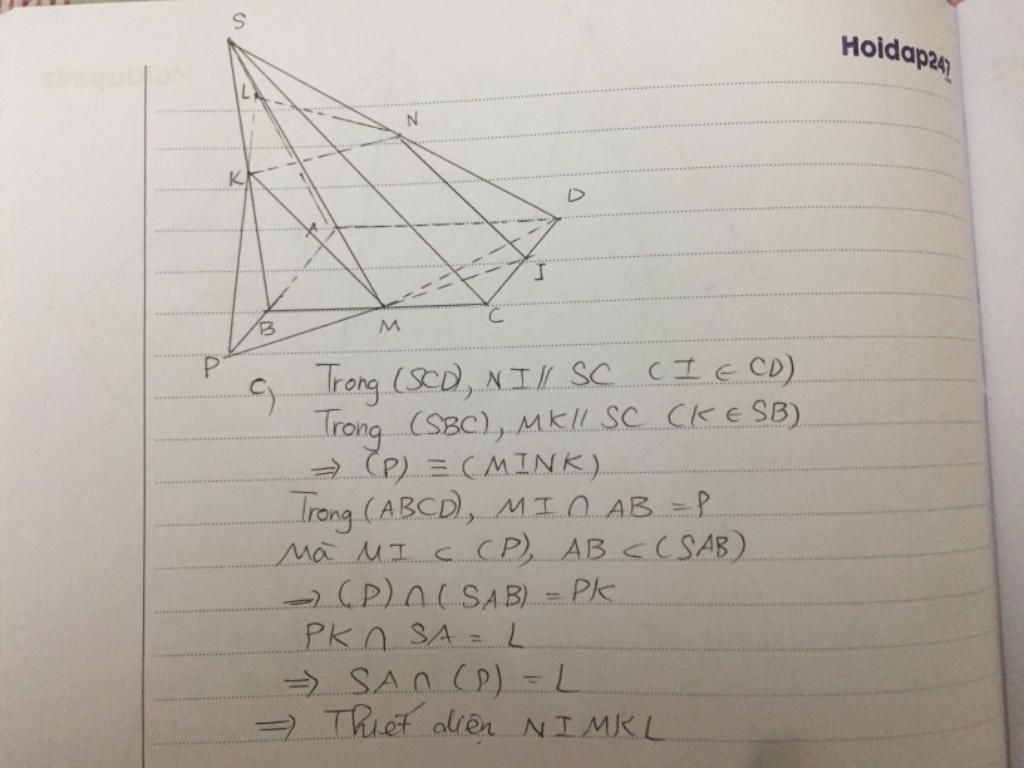 S
Hoidap247
L
N
K
D
A
I
B
M
C
P
c) Trong (SCD), NI // SC (I ∈ CD)
Trong (SBC), MK // SC (K ∈ SB)
⇒ (P) ≡ (MINK)
Trong (ABCD), MI ∩ AB = P
Mà MI ⊂ (P), AB ⊂ (SAB)
⇒ (P) ∩ (SAB) = PK
PK ∩ SA = L
⇒ SA ∩ (P) = L
⇒ Thiết diện NIMKL